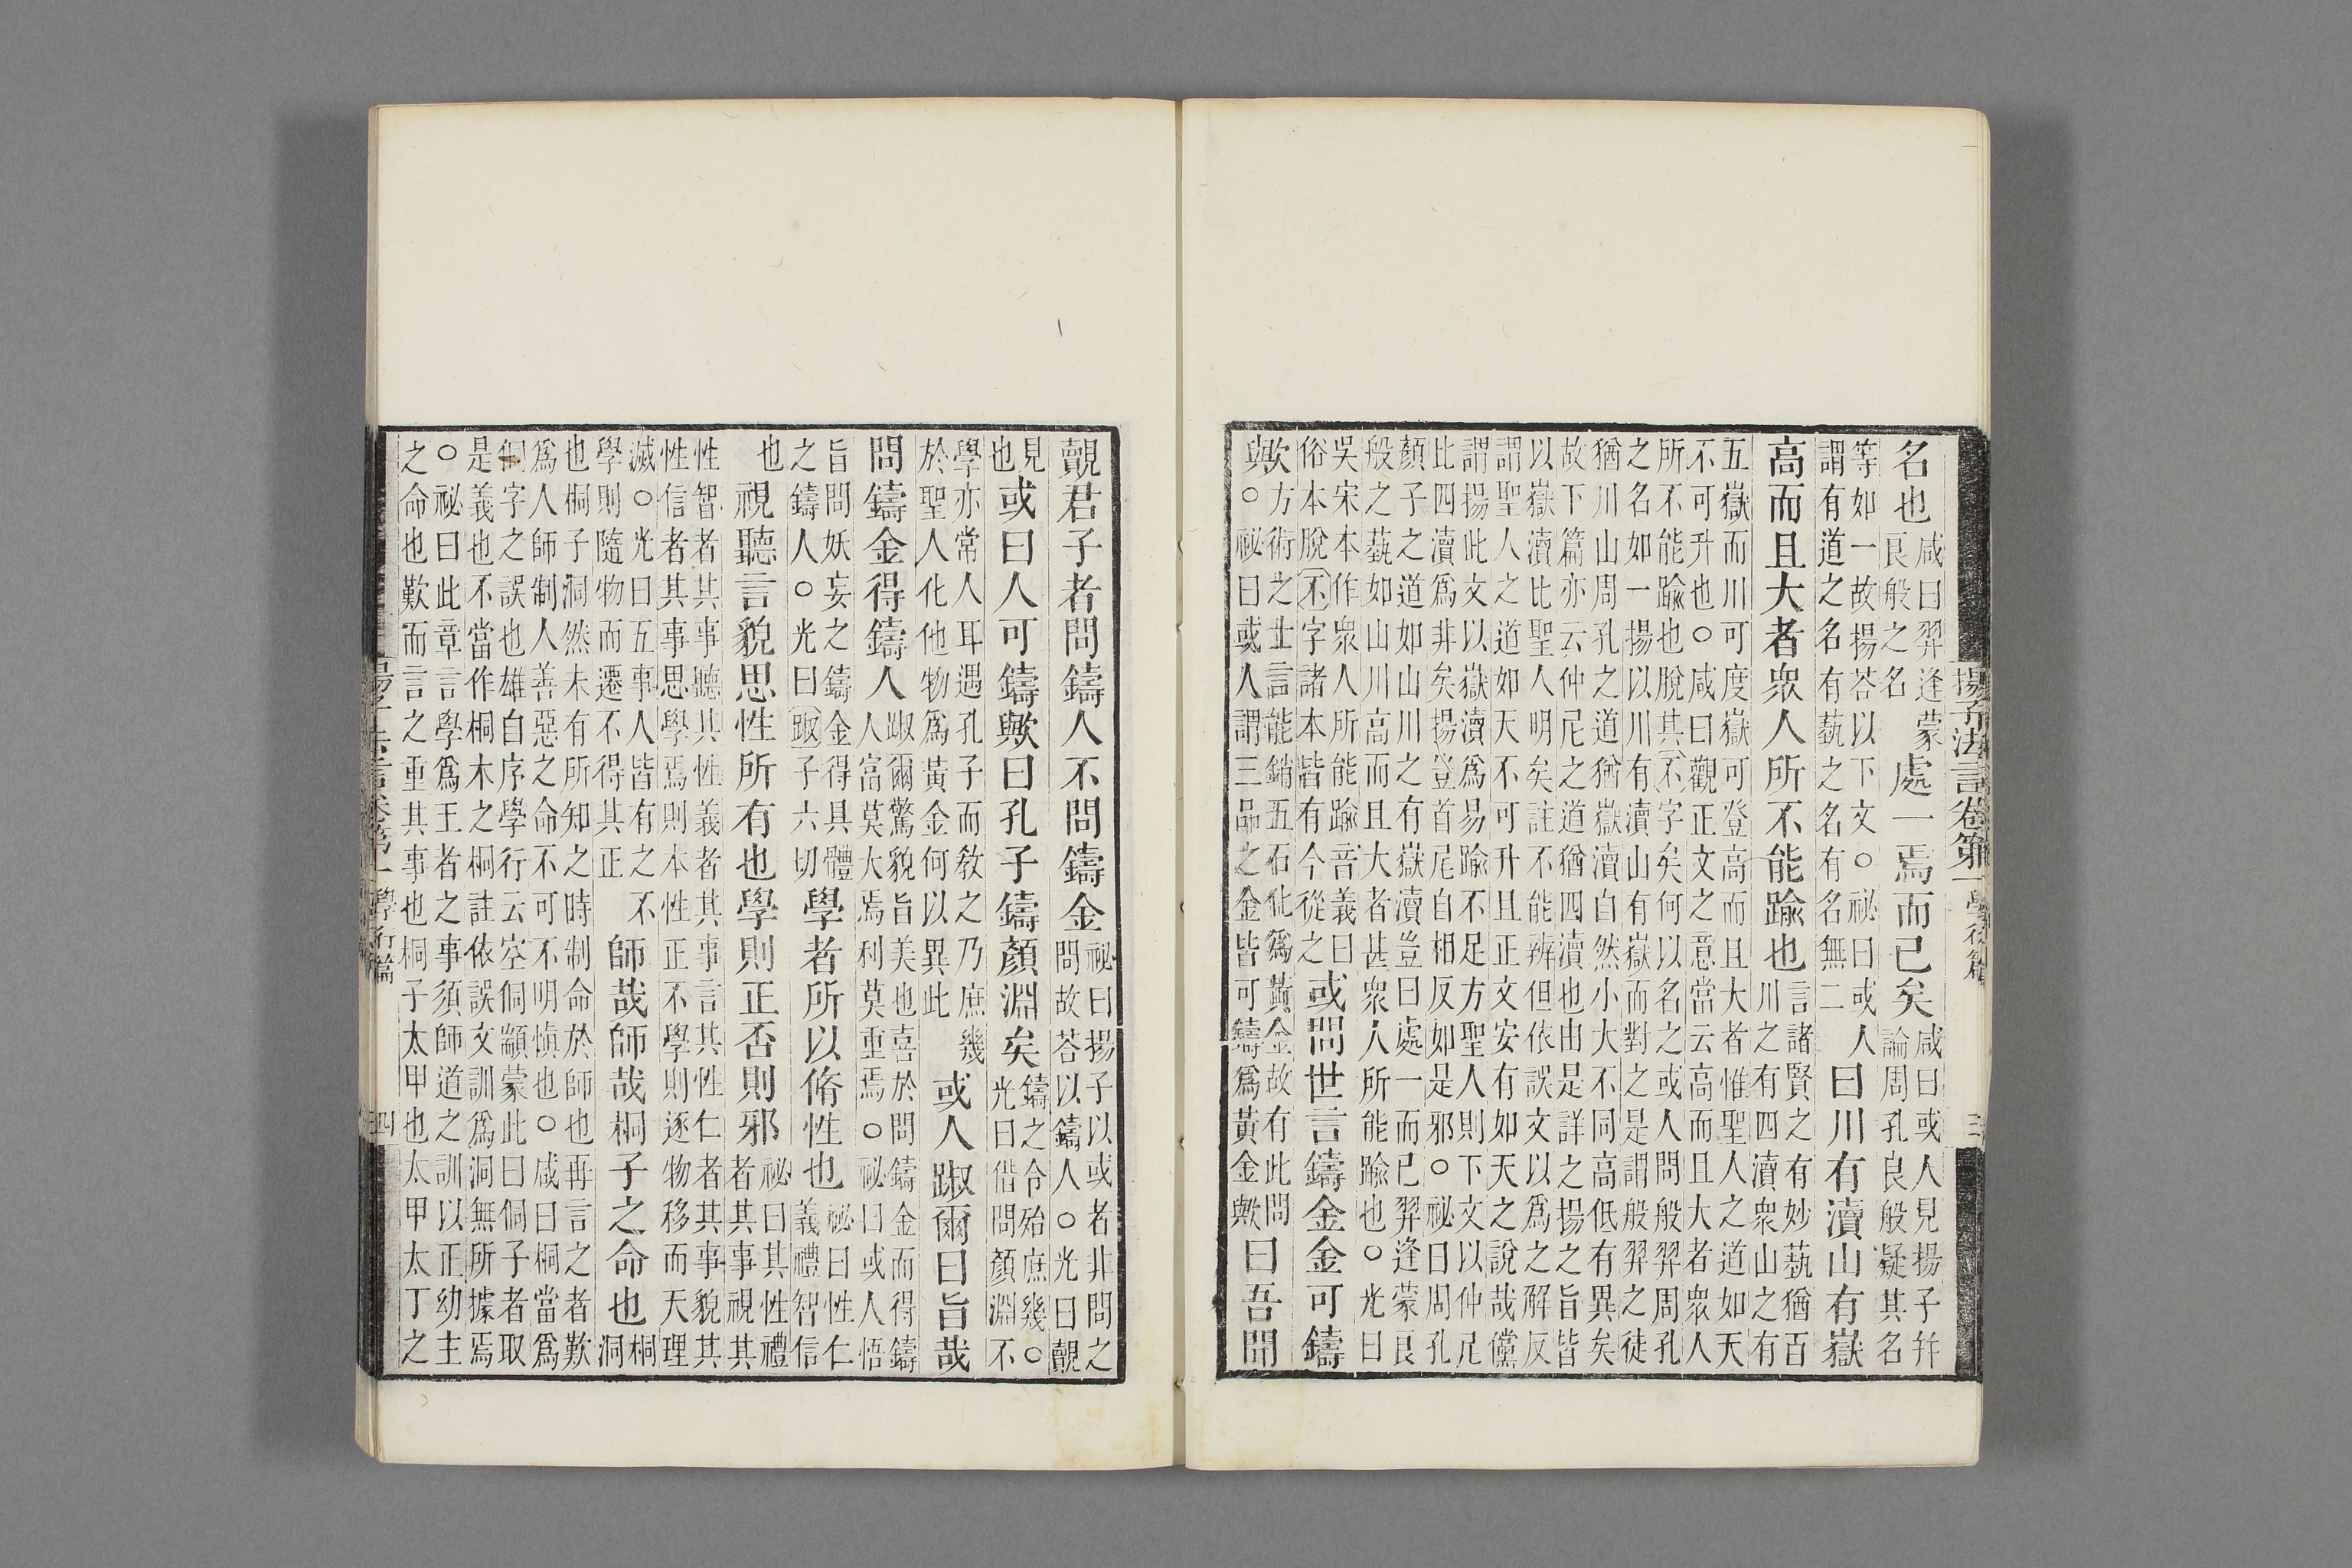 揚子法言卷第一 學行篇 三
名也咸曰羿逢蒙良般之名處一焉而已矣咸曰或人見揚子幷論周孔良般疑其名
等如一故揚荅以下文○祕曰或人謂有道之名有藝之名有名無二曰川有瀆山有嶽
高而且大者衆人所不能踰也言諸賢之有妙藝猶百川之有四瀆衆山之有
五嶽而川可度嶽可登高而且大者惟聖人之道如天不可升也○咸曰觀正文之意當云高而且大者衆人
所不能踰也脫其不字矣何以名之或人問般羿周孔之名如一揚以川有瀆山有嶽而對之是謂般羿之徒
猶川山周孔之道猶嶽瀆自然小大不同高低有異矣故下篇亦云仲尼之道猶四瀆也由是詳之揚之旨皆
以嶽瀆比聖人明矣註不能辨但依誤文以爲之解反謂聖人之道如天不可升且正文安有如天之說哉儻
謂揚此文以嶽瀆爲易踰不足方聖人則下文以仲尼比四瀆爲非矣揚豋首尾自相反如是邪○祕曰周孔
顏子之道如山川之有嶽瀆豈曰處一而已羿逢蒙良般之藝如山川高而且大者甚衆人所能踰也○光曰
吳宋本作衆人所能踰音義曰俗本脫不字諸本皆有今從之或問世言鑄金金可鑄
歟方術之士言能銷五石化爲黃金故有此問○祕曰或人謂三品之金皆可鑄爲黃金歟曰吾聞
覿君子者問鑄人不問鑄金祕曰揚子以或者非問之問故荅以鑄人○光曰覿
見也或曰人可鑄歟曰孔子鑄顏淵矣鑄之令殆庶幾○光曰借問顏淵不
學亦常人耳遇孔子而教之乃庶幾於聖人化他物爲黃金何以異此或人踧爾曰旨哉
問鑄金得鑄人踧爾驚貌旨美也喜於問鑄金而得鑄人富莫大焉利莫重焉○祕曰或人悟
旨問妖妄之鑄金得具體之鑄人○光曰踧子六切學者所以脩性也祕曰性仁義禮智信
也視聽言貌思性所有也學則正否則邪祕曰其性禮者其事視其
性智者其事聽其性義者其事言其性仁者其事貌其性信者其事思學焉則本性正不學則逐物移而天理
滅○光曰五事人皆有之不學則隨物而遷不得其正師哉師哉桐子之命也桐洞
也桐子洞然未有所知之時制命於師也再言之者歎爲人師制人善惡之命不可不明愼也○咸曰桐當爲
侗字之誤也雄自序學行云空侗顓蒙此曰侗子者取是義也不當作桐木之桐註依誤文訓爲洞無所據焉
○祕曰此章言學爲王者之事須師道之訓以正幼主之命也歎而言之重其事也桐子太甲也太甲太丁之
揚子法言卷第一 學行篇 四